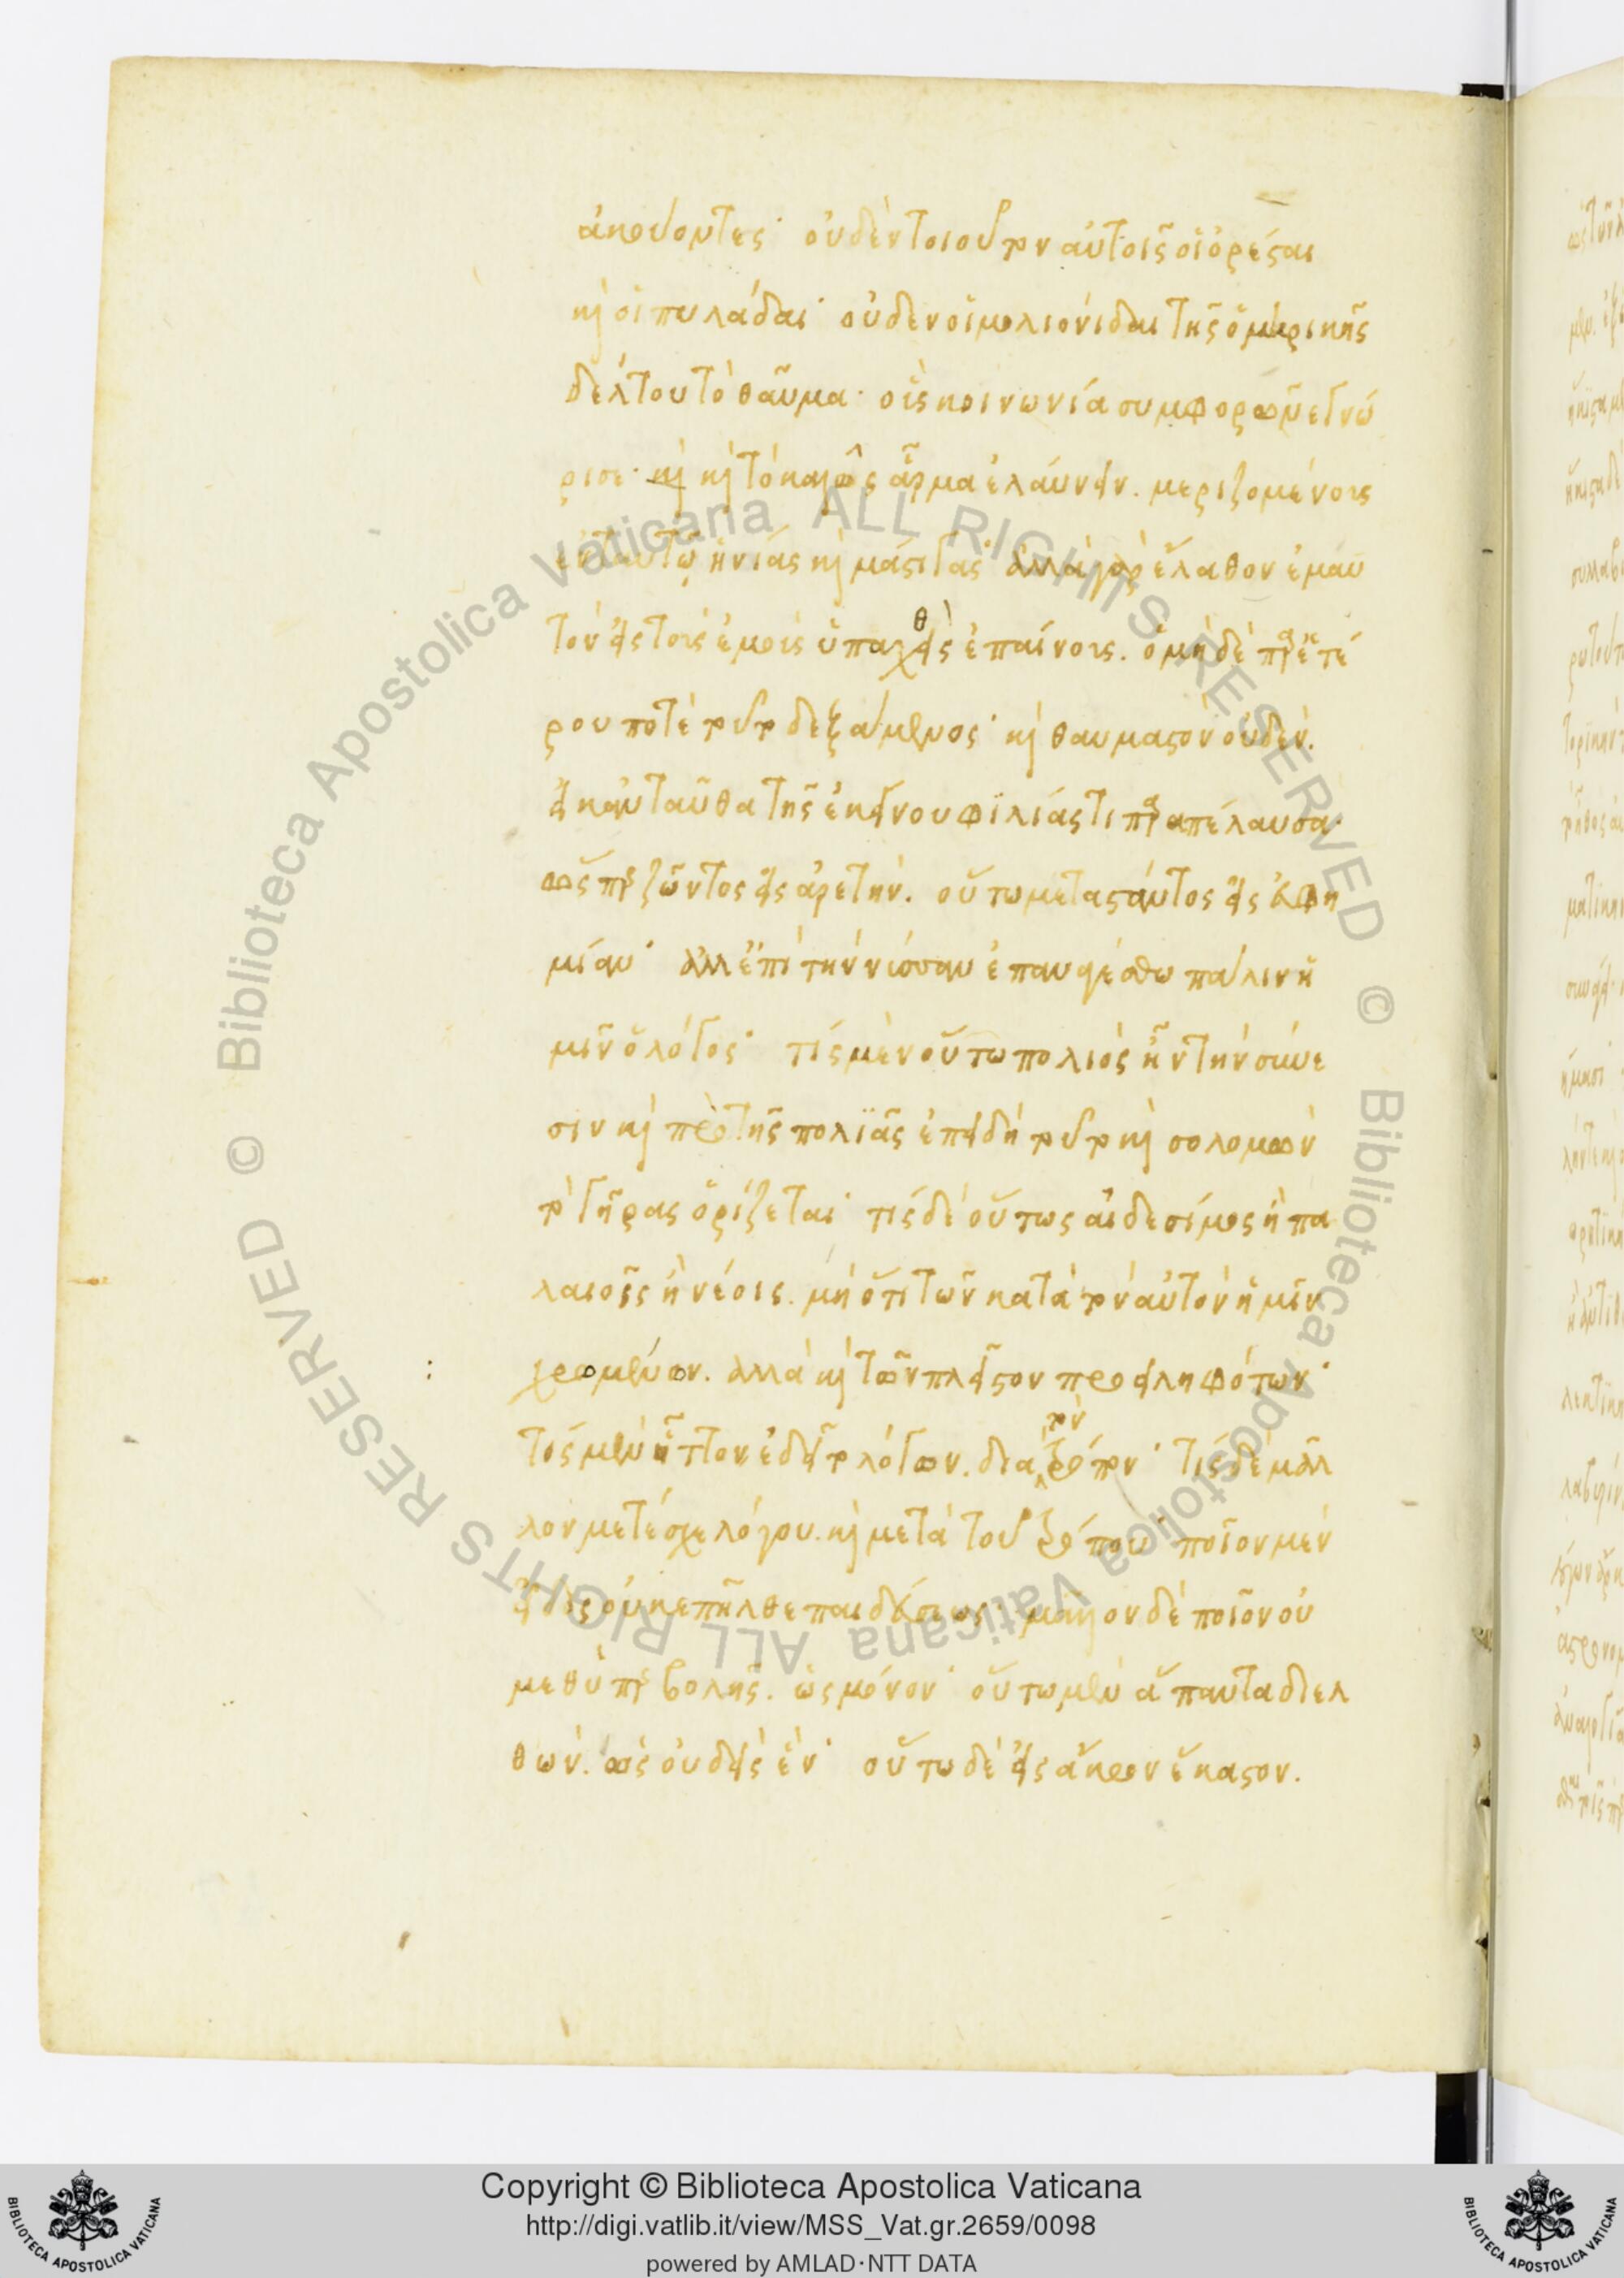 ἀκούοντες· οὐδὲν τοιοῦτον αὐτοῖς οἱ ὀρέσται
καὶ οἱ πυλάδαι· οὐδὲν οἱ μολιονίδαι τῆς ὁμηρικῆς
δέλτου τὸ θαῦμα· οἷς κοινωνία συμφορῶν ἐγνώ
ρισε· καὶ καὶ τὸ καλῶς ἅρμα ἐλαύνειν. μεριζομένοις
ἐν ταυτῷ ἡνίας καὶ μάστιγας· ἀλλὰ γὰρ ἔλαθον ἐμαυ
τὸν εἰς τοὺς ἐμοὺς ὑπαχθεὶς ἐπαίνους. ὁ μηδὲ παρ' ἑτέ
ρου ποτὲ τοῦτο δεξάμενος· καὶ θαυμαστὸν οὐδέν.
εἰ κἀνταῦθα τῆς ἐκείνου φϊλίας τι παραπέλαυσα·
ὥσπερ ζῶντος εἰς ἀρετήν. οὕτω μεταστάντος εἰς εὐφη
μίαν· ἀλλ' ἐπὶ τὴν νύσσαν ἐπαναγέσθω πάλιν ἡ
μῖν ὁ λόγος· τίς μὲν οὕτω πολιὸς ἦν τὴν σύνε
σιν καὶ πρὸ τῆς πολϊᾶς ἐπειδὴ τοῦτο καὶ σολομὼν
τὸ γῆρας ὁρίζεται· τίς δὲ οὕτως αἰδέσιμος ἢ πα
λαιοῖς ἢ νέοις. μὴ ὅτι τῶν κατὰ τὸν αὐτὸν ἡμῖν
χρόνον. ἀλλὰ καὶ τῶν πλεῖστον προειληφότων·
τίς μὲν ἧττον ἐδεῖτο λόγων. διὰ τὸν τρόπον· τίς δὲ μᾶλ
λον μετέσχε λόγου. καὶ μετὰ τοῦ τρόπου· ποῖον μὲν
εἶδος οὐκ ἐπῆλθε παιδεύσεως· μᾶλλον δὲ ποῖον οὐ
μεθ' ὑπερβολῆς. ὡς μόνον· οὕτω μὲν ἅπαντα διελ
θών. ὡς οὐδεὶς ἕν· οὕτω δὲ εἰς ἄκρον ἕκαστον.
Copyright © Biblioteca Apostolica Vaticana
http://digi.vatlib.it/view/MSS_Vat.gr.2659/0098
powered by AMLAD·NTT DATA
BIBLIOTECA APOSTOLICA VATICANA
BIBLIOTECA APOSTOLICA VATICANA
© Biblioteca Apostolica Vaticana ALL RIGHTS RESERVED
© Biblioteca Apostolica Vaticana ALL RIGHTS RESERVED